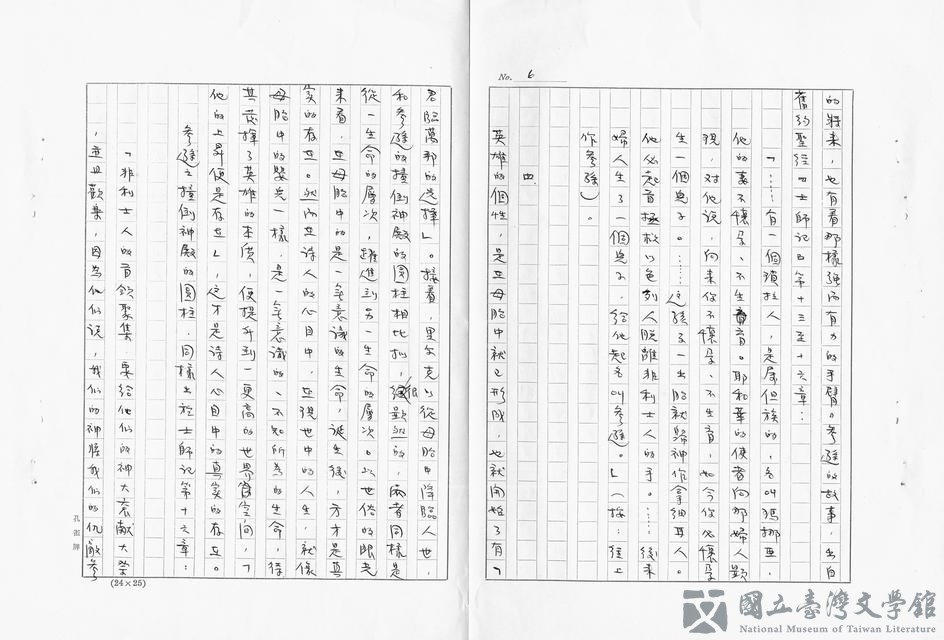 No. 6
的將來，也有着那樣強而有力的手臂。參孫的故事，出自
舊約聖經四士師記第十三至十六章：
「……有一個瑣拉人，是屬但族的，名叫瑪挪亞，
他的妻不懷孕、不生育。耶和華的使者向那婦人顯
現，對他說，向來你不懷孕、不生育，如今你必懷孕
生一個兒子。……這孩子一出胎就歸神作拿細耳人。
他必起首拯救以色列人脫離非利士人的手。……後來
婦人生了一個兒子，給他起名叫參孫。」（按：經上
作參孫）。
四、
英雄的個性，是在母胎中就已形成，也就開始了有「
君臨萬邦的選擇」。接着，里爾克以從母胎中降臨人世，
和參孫的撞倒神殿的圓柱相比擬，很顯然的，兩者同樣是
從一生命的層次，躍進到另一生命的層次。以世俗的眼光
來看，在母胎中的是一無意識的生命，誕生後，方才是真
實的存在。然而在詩人的心目中，在現世中的人生，就像
母胎中的嬰兒一樣，是一無意識的、不知所為的生命，待
其發揮了英雄的本質，便提升到一更高的世界空間，「
他的上昇便是存在」，這才是詩人心目中的真實的存在。
參孫之撞倒神殿的圓柱，同樣出於士師記第十六章：
「非利士人的首領聚集，要給他們的神大袞獻大祭
，並且歡樂，因為他們說，我們的神將我們的仇敵參
孔雀牌
(24×25)
國立臺灣文學館
National Museum of Taiwan Literature